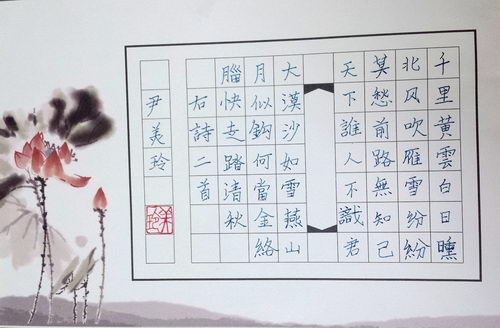 千里黃雲白日曛
北风吹雁雪纷紛
莫愁前路無知己
天下誰人不識君
大漠沙如雪燕山
月似鈎何當金絡
腦快走踏清秋
右詩二首
尹美玲